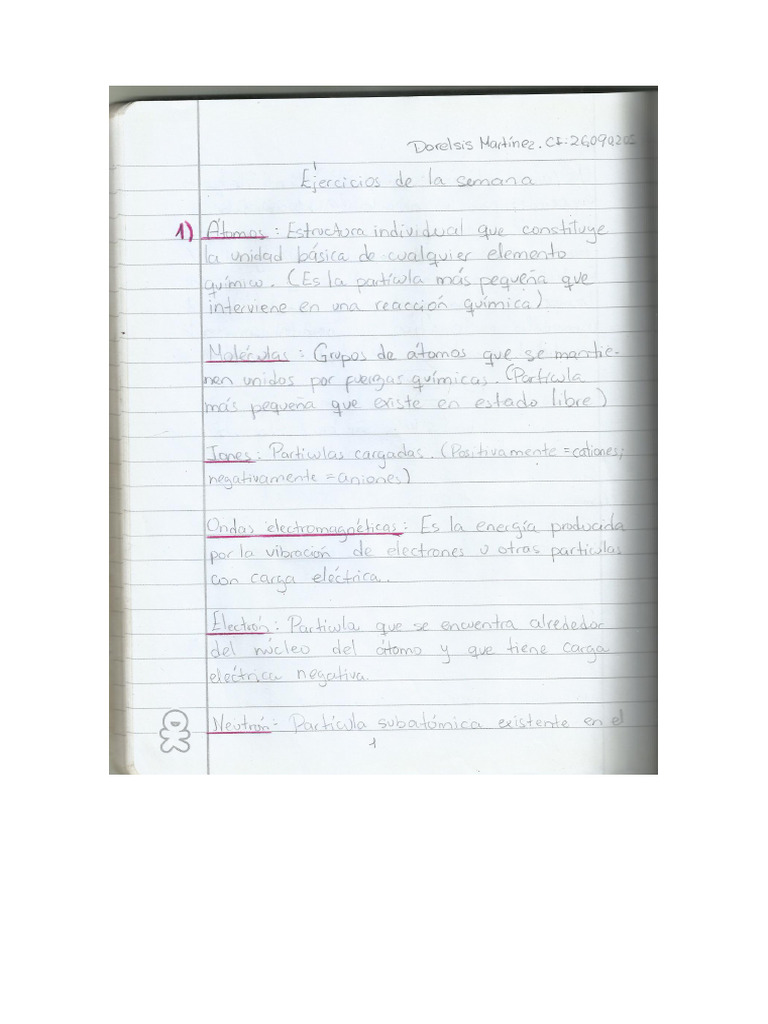 Dorelsis Martínez. CI:
Ejercicios de la semana
1) Átomos: Estructura individual que constituye
la unidad básica de cualquier elemento
químico. (Es la partícula más pequeña que
interviene en una reacción química)
Moléculas: Grupos de átomos que se mantie-
nen unidos por fuerzas químicas. (Partícula
más pequeña que existe en estado libre)
Iones: Partículas cargadas. (Positivamente = cationes;
negativamente = aniones)
Ondas electromagnéticas: Es la energía producida
por la vibración de electrones u otras partículas
con carga eléctrica.
Electrón: Partícula que se encuentra alrededor
del núcleo del átomo y que tiene carga
eléctrica negativa.
Neutrón: Partícula subatómica existente en el
1